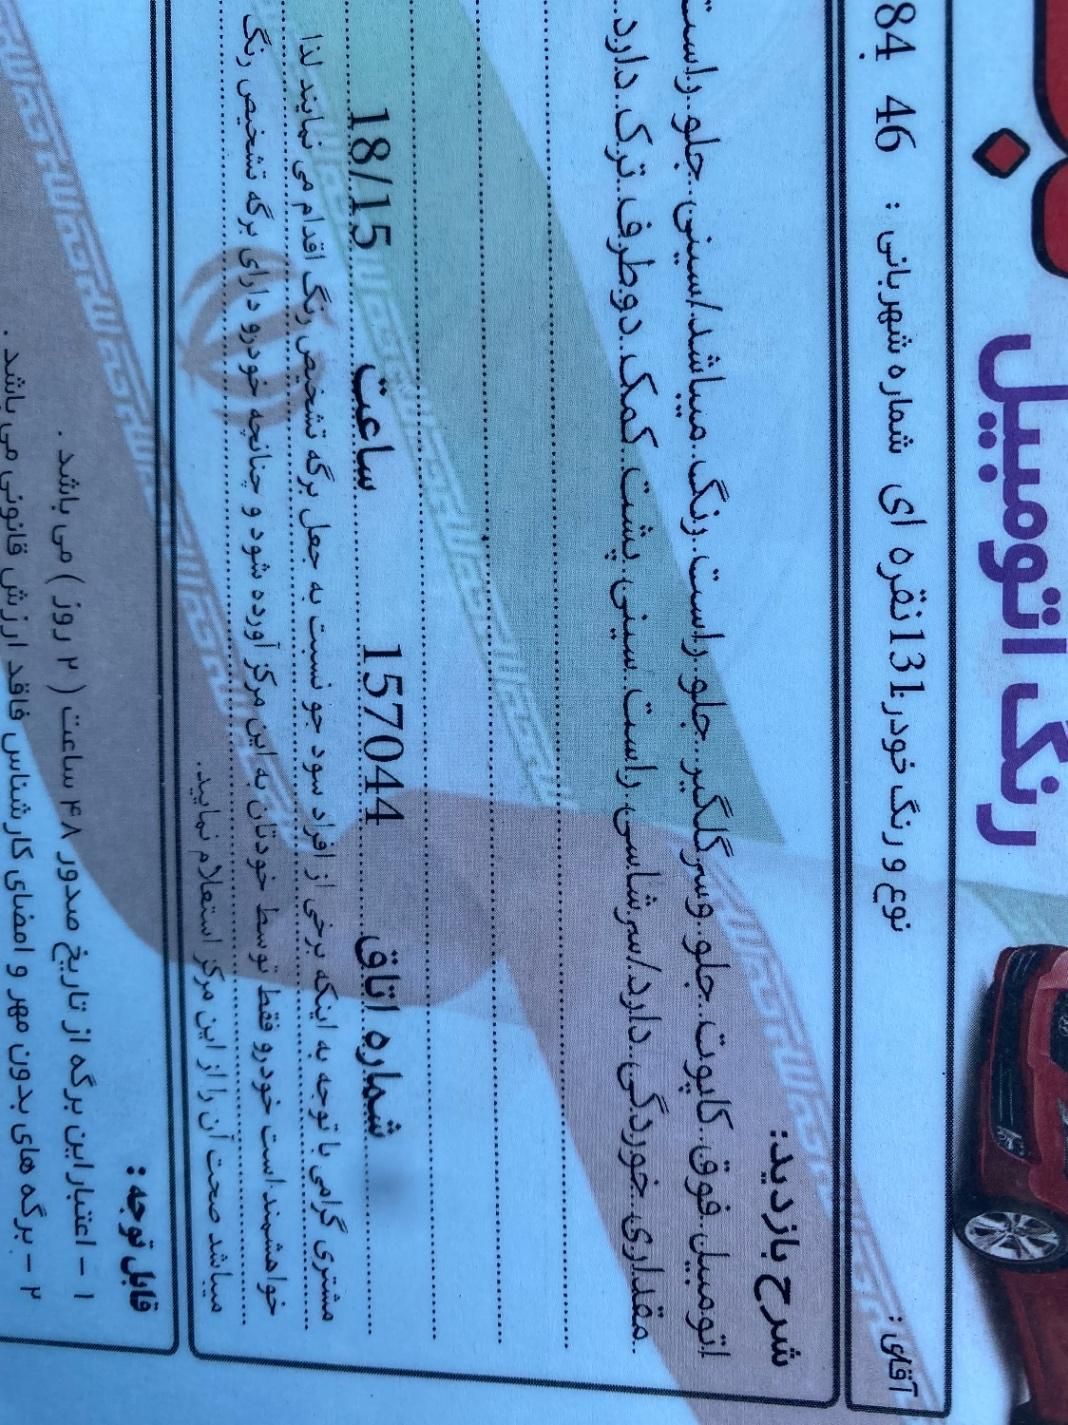 رنگ اتومبیل
آقای :
نوع و رنگ خودر131نقره ای شماره شهربانی : 46 84
شرح بازدید:
اتومبیل.فوق.کاپوت.جلو.وسرگلگیر.جلو.راست.رنگ.میباشد/سینی.جلو.راست
مقداری.خوردگی.دارد/سرشاسی.راست.سینی.پشت.کمک.دوطرف.ترک.دارد
شماره اتاق 15704418/15 ساعت
مشتری گرامی با توجه به اینکه برخی از افراد سود جو نسبت به جعل برگه تشخیص رنگ اقدام می نمایند لذا
خواهشمند است خودرو فقط توسط خودتان به این مرکز آورده شود و چنانچه خودرو دارای برگه تشخیص رنگ
میباشد صحت آن را از این مرکز استعلام نمایید.
قابل توجه :
۱ - اعتبار این برگه از تاریخ صدور ۴۸ ساعت ( ۲ روز ) می باشد .
۲ - برگه های بدون مهر و امضای کارشناس فاقد ارزش قانونی می باشد .